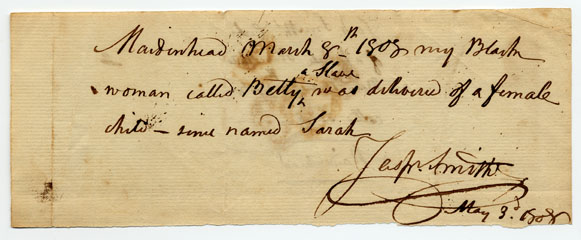 Maidenhead March 8th 1808 my Black
a Slave
woman called Betty ^ was delivered of a female
child – since named Sarah
Jaspr. Smith
May 3d 1808